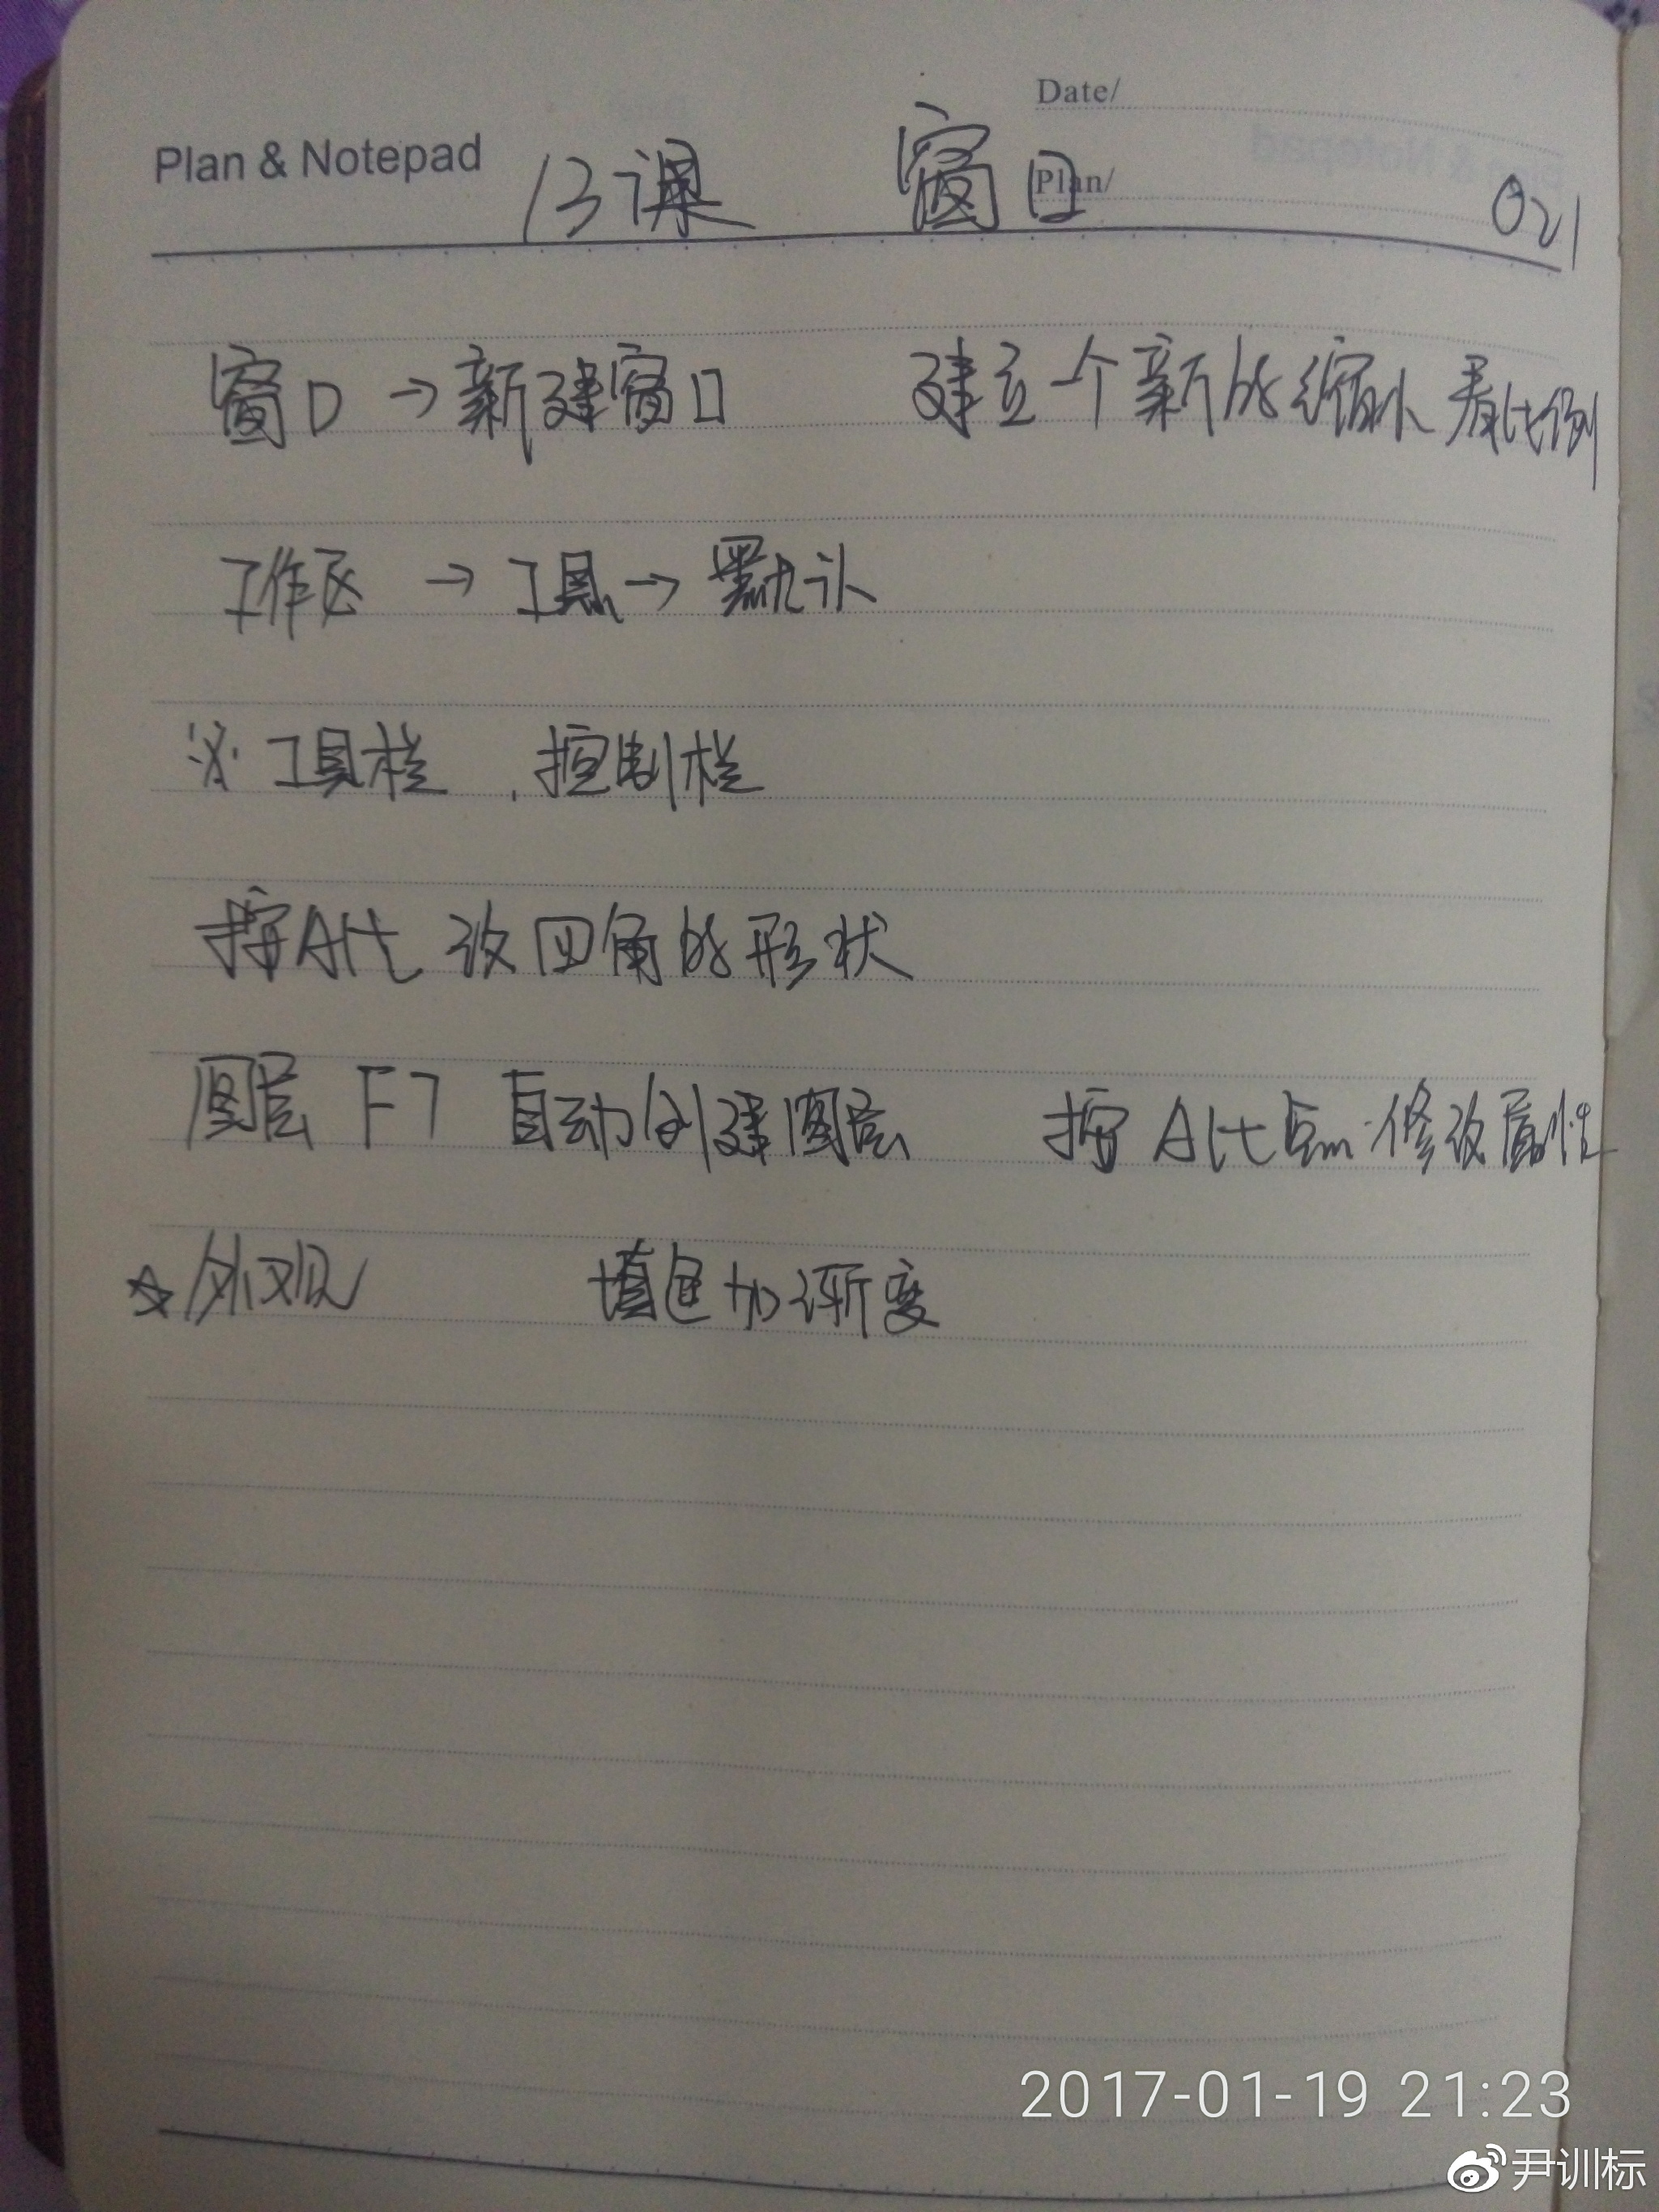 Date/
Plan & Notepad 13课 窗口 Plan/ 021
窗口 → 新建窗口 建立一个新的缩小看比例
工作区 → 工具 → 默认
※ 工具栏 . 控制栏
按Alt 改四角的形状
图层 F7 自动创建图层 按 Alt 点 修改属性
☆外观 填色加渐变
2017-01-19 21:23
尹训标